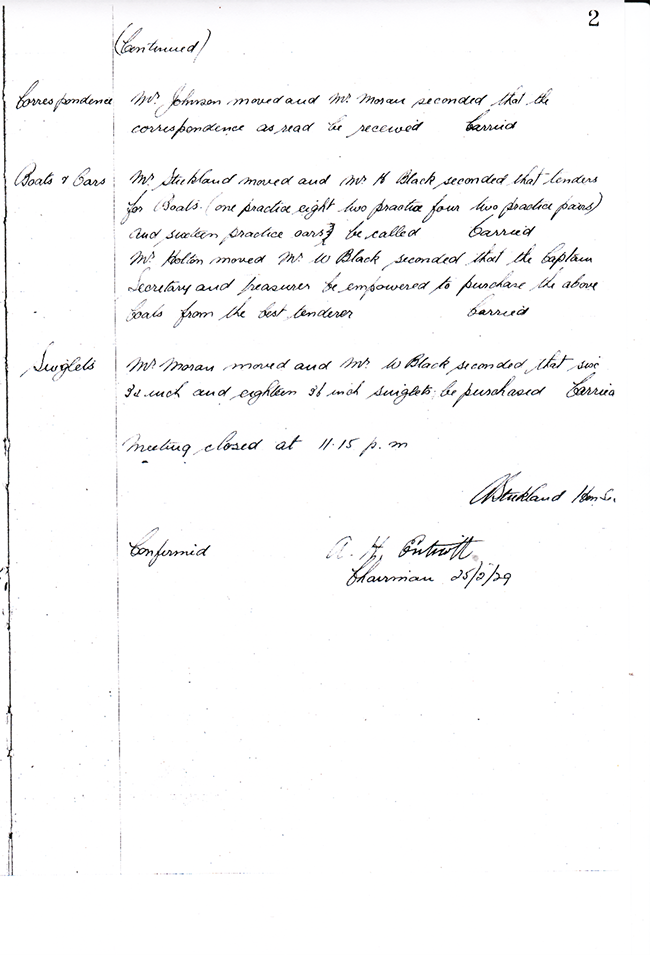 2
(Continued)
Correspondence Mr Johnson moved and Mr Moran seconded that the
correspondence as read be received Carried
Boats & Oars Mr Stickland moved and Mr H Black seconded that tenders
for Boats (one practice eight two practice four two practice pairs)
and sixteen practice oars be called Carried
Mr Holton moved Mr W Black seconded that the Captain
Secretary and treasurer be empowered to purchase the above
boats from the best tenderer Carried
Singlets Mr Moran moved and Mr W Black seconded that six
34 inch and eighteen 36 inch singlets be purchased Carried
Meeting closed at 11.15 p.m
Stickland Hon Sec
Confirmed A. H.
Chairman 25/2/29